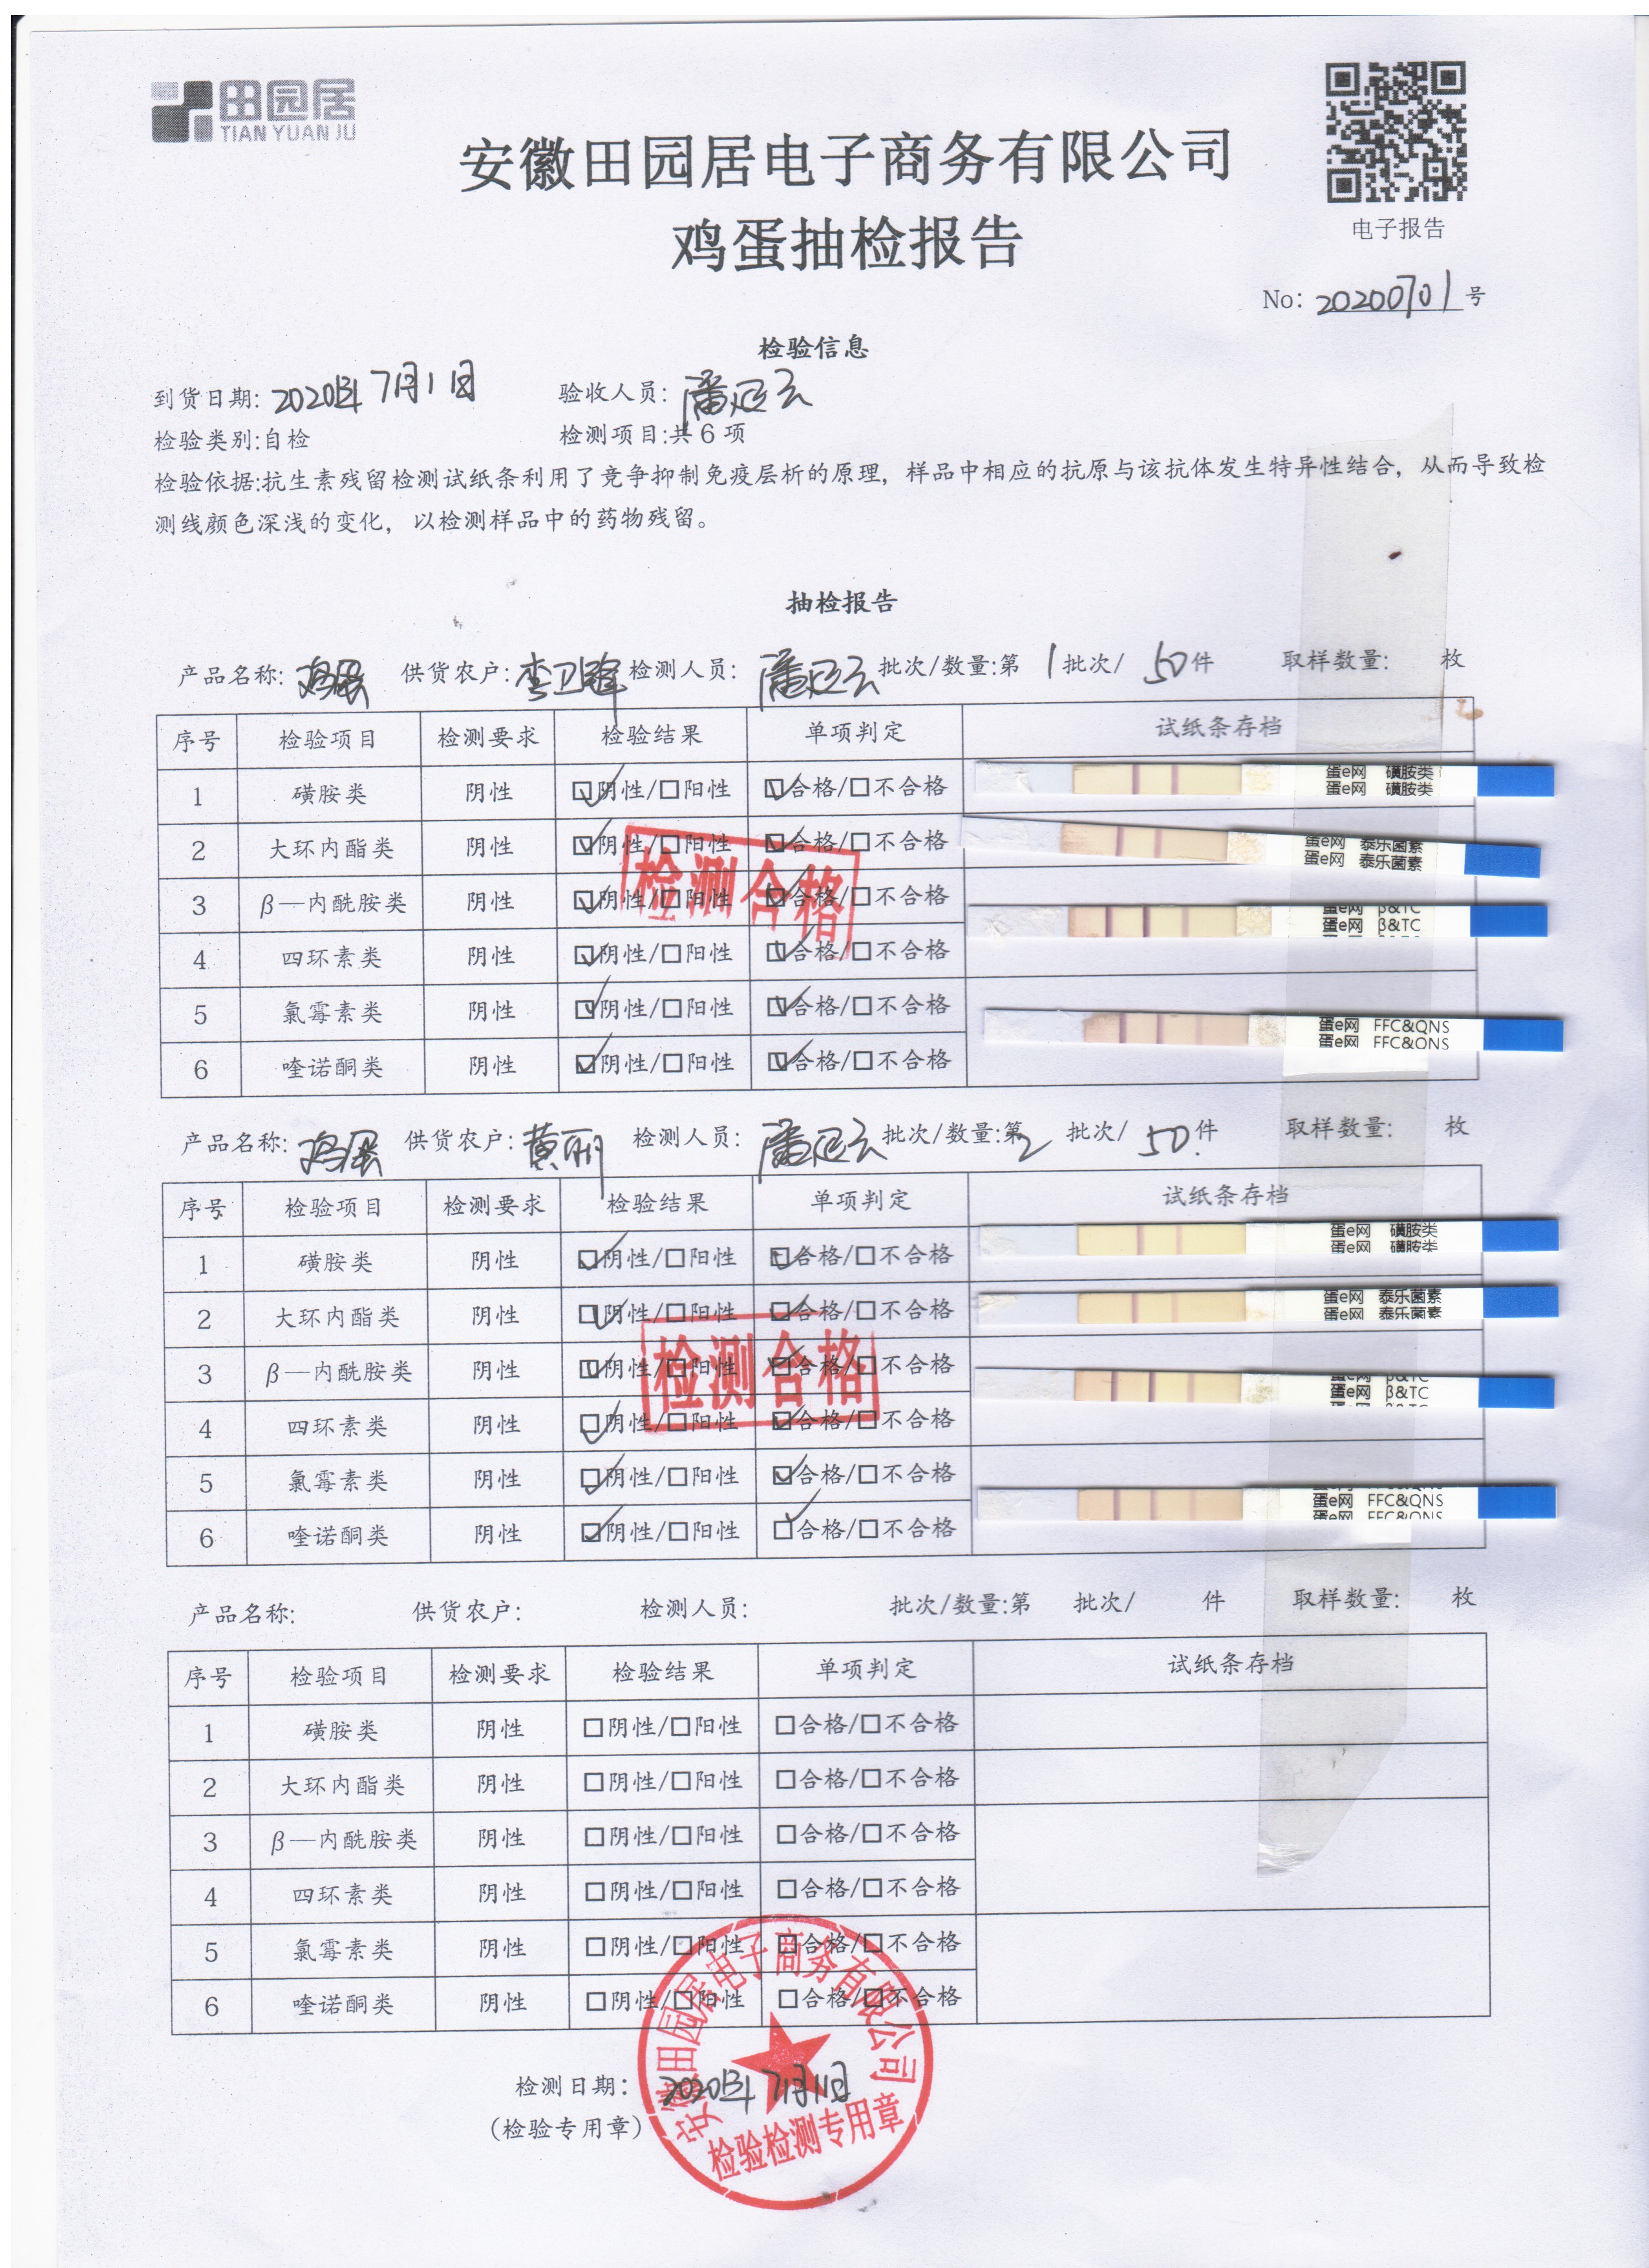 田园居
TIAN YUAN JU
安徽田园居电子商务有限公司
鸡蛋抽检报告
电子报告
No: 20200701号
检验信息
到货日期: 2020年7月1日 验收人员: 潘
检验类别:自检 检测项目:共6项
检验依据:抗生素残留检测试纸条利用了竞争抑制免疫层析的原理，样品中相应的抗原与该抗体发生特异性结合，从而导致检
测线颜色深浅的变化，以检测样品中的药物残留。
抽检报告
产品名称: 鸡蛋 供货农户: 李卫 检测人员: 潘 批次/数量:第1批次/ 50件 取样数量: 枚
序号 检验项目 检测要求 检验结果 单项判定 试纸条存档
1 磺胺类 阴性 ☑阴性/☐阳性 ☑合格/☐不合格 蛋e网 磺胺类
蛋e网 磺胺类
2 大环内酯类 阴性 ☑阴性/☐阳性 ☑合格/☐不合格 蛋e网 泰乐菌素
蛋e网 泰乐菌素
3 β—内酰胺类 阴性 ☑阴性/☐阳性 ☑合格/☐不合格 蛋e网 β&TC
蛋e网 β&TC
4 四环素类 阴性 ☑阴性/☐阳性 ☑合格/☐不合格
5 氯霉素类 阴性 ☑阴性/☐阳性 ☑合格/☐不合格 蛋e网 FFC&QNS
蛋e网 FFC&QNS
6 喹诺酮类 阴性 ☑阴性/☐阳性 ☑合格/☐不合格
检测合格
产品名称: 鸡蛋 供货农户: 黄丽 检测人员: 潘 批次/数量:第2批次/ 50件 取样数量: 枚
序号 检验项目 检测要求 检验结果 单项判定 试纸条存档
1 磺胺类 阴性 ☑阴性/☐阳性 ☑合格/☐不合格 蛋e网 磺胺类
蛋e网 磺胺类
2 大环内酯类 阴性 ☑阴性/☐阳性 ☑合格/☐不合格 蛋e网 泰乐菌素
蛋e网 泰乐菌素
3 β—内酰胺类 阴性 ☑阴性/☐阳性 ☑合格/☐不合格 蛋e网 β&TC
蛋e网 β&TC
4 四环素类 阴性 ☑阴性/☐阳性 ☑合格/☐不合格
5 氯霉素类 阴性 ☑阴性/☐阳性 ☑合格/☐不合格 蛋e网 FFC&QNS
蛋e网 FFC&QNS
6 喹诺酮类 阴性 ☑阴性/☐阳性 ☑合格/☐不合格
检测合格
产品名称: 供货农户: 检测人员: 批次/数量:第 批次/ 件 取样数量: 枚
序号 检验项目 检测要求 检验结果 单项判定 试纸条存档
1 磺胺类 阴性 ☐阴性/☐阳性 ☐合格/☐不合格
2 大环内酯类 阴性 ☐阴性/☐阳性 ☐合格/☐不合格
3 β—内酰胺类 阴性 ☐阴性/☐阳性 ☐合格/☐不合格
4 四环素类 阴性 ☐阴性/☐阳性 ☐合格/☐不合格
5 氯霉素类 阴性 ☐阴性/☐阳性 ☐合格/☐不合格
6 喹诺酮类 阴性 ☐阴性/☐阳性 ☐合格/☐不合格
检测日期: 2020年7月1日
（检验专用章）
安徽田园居电子商务有限公司
检验检测专用章